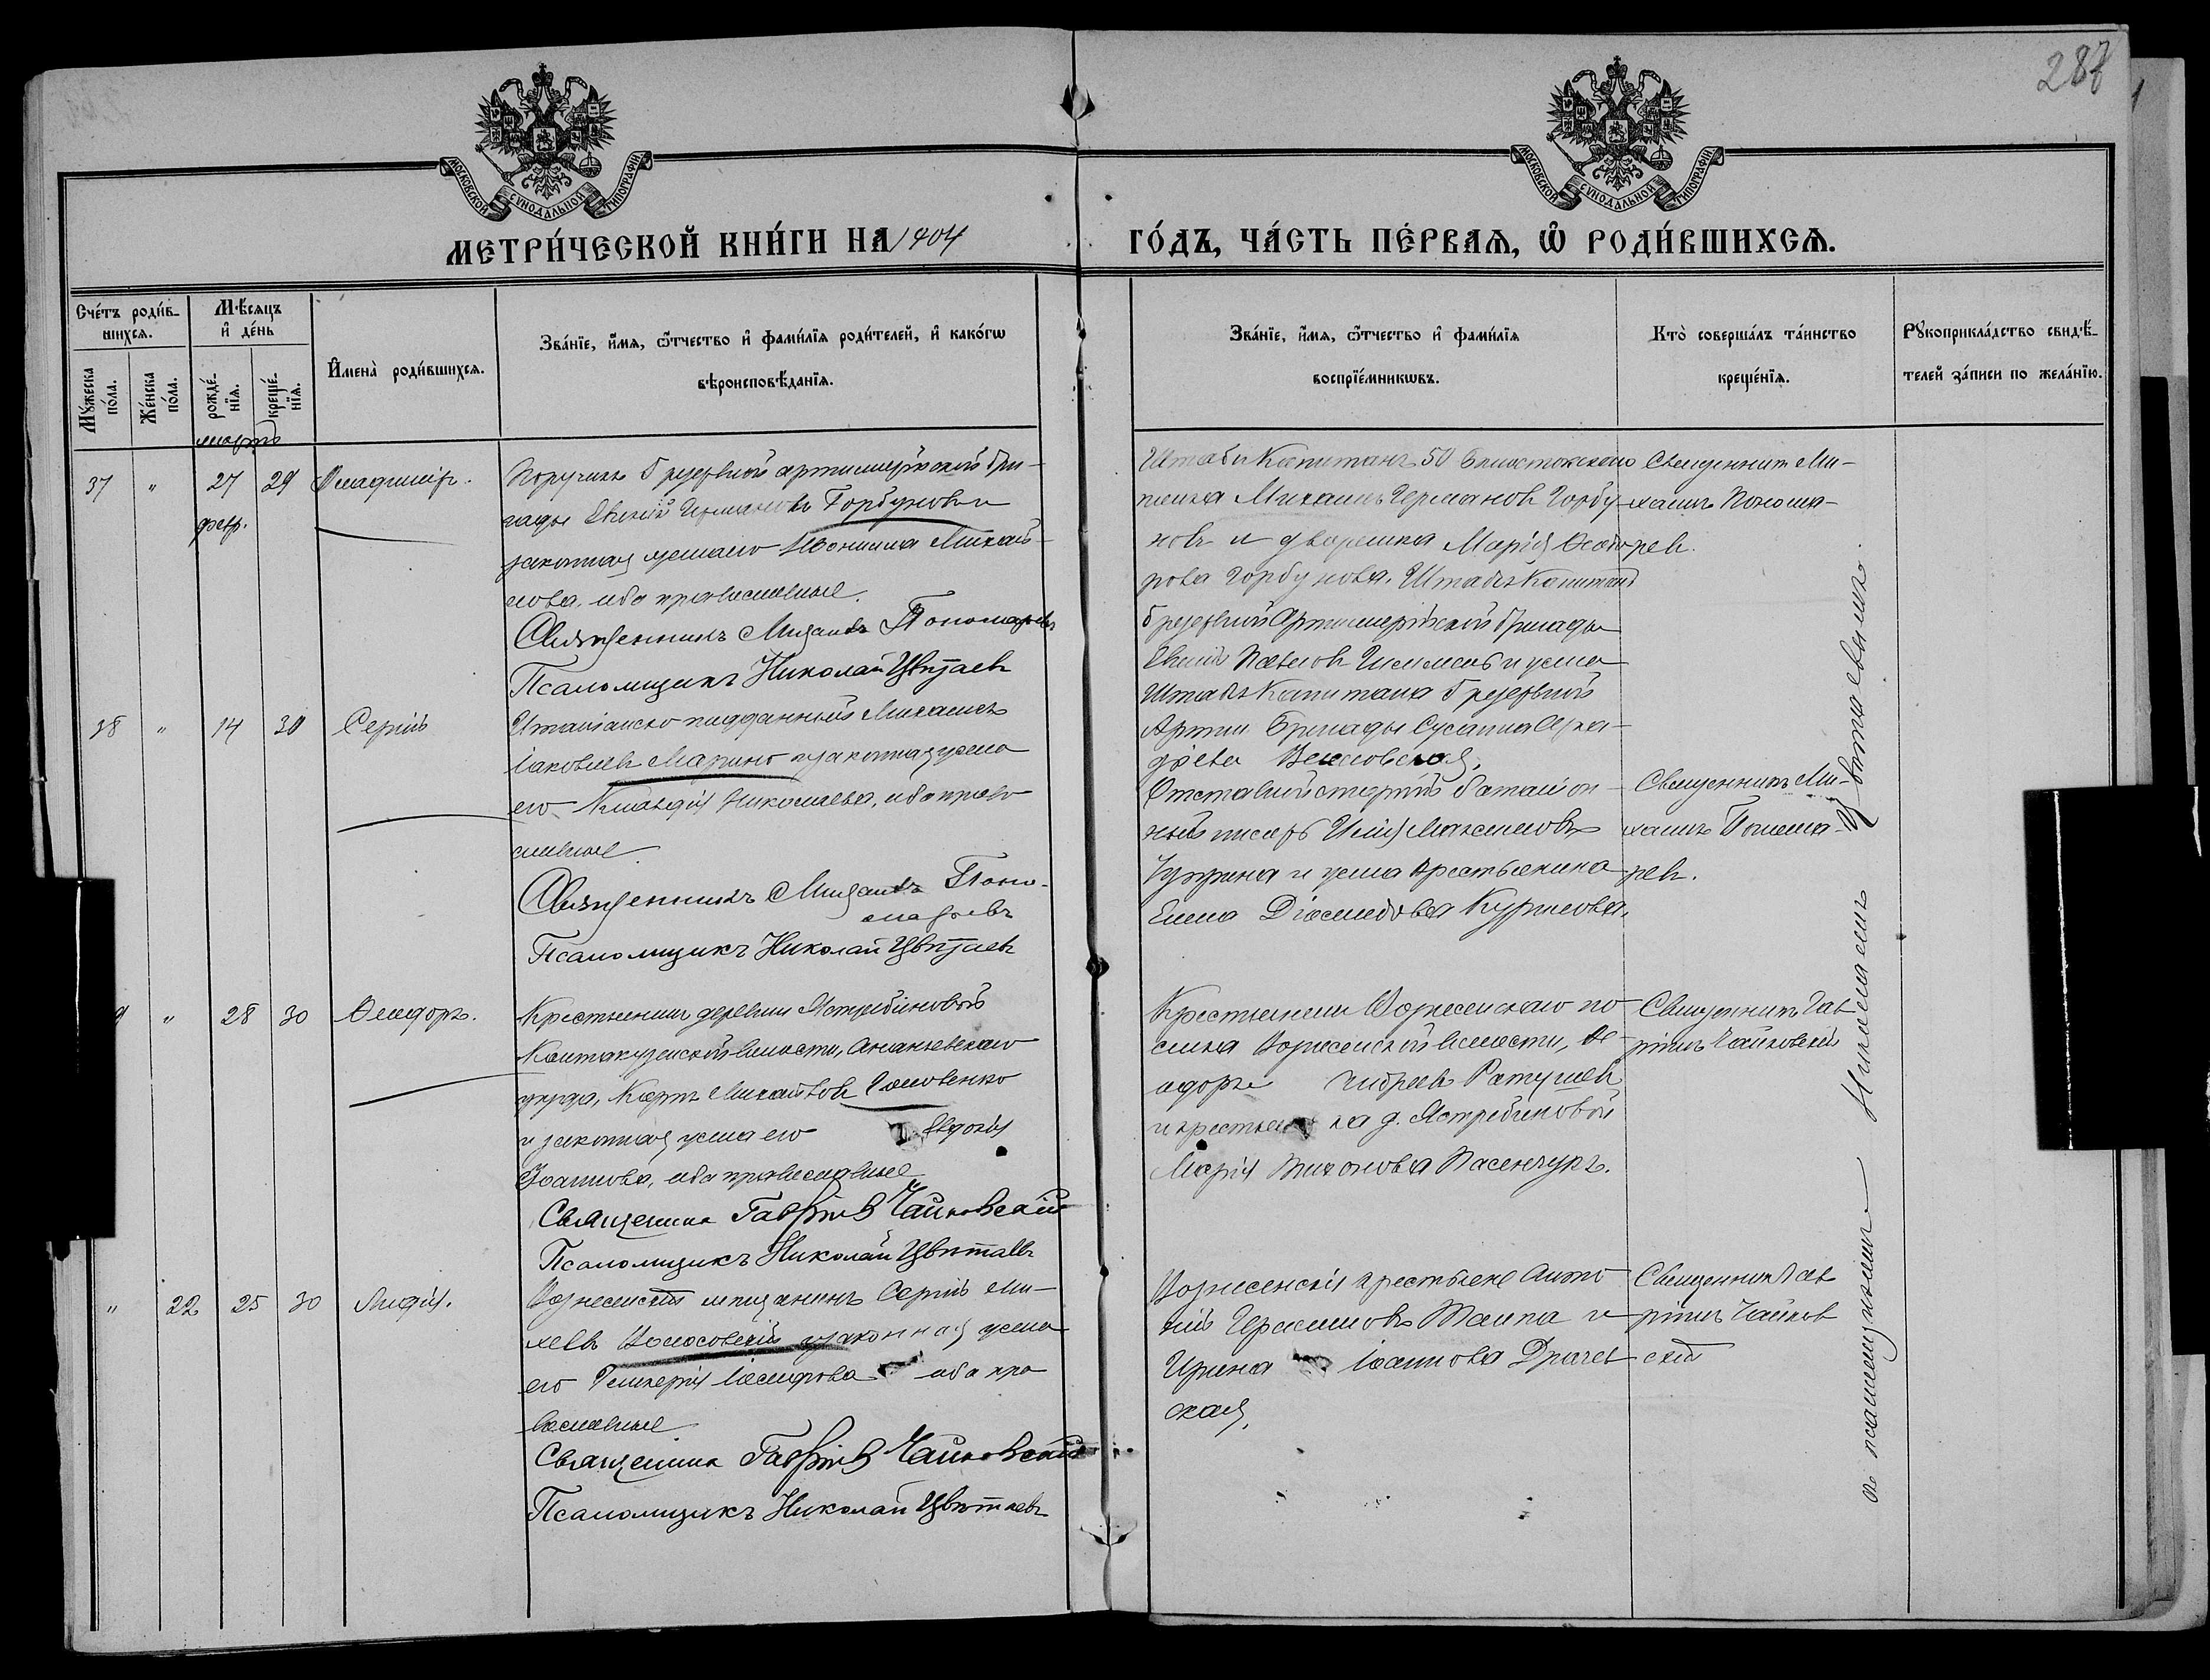 287
МОСКОВСКОЙ СУНОДАЛЬНОЙ ТИПОГРАФІИ.
МОСКОВСКОЙ СУНОДАЛЬНОЙ ТИПОГРАФІИ.
МЕТРИ́ЧЕСКОЙ КНИ́ГИ НА 1904
ГО́ДЪ, ЧА́СТЬ ПЕ́РВАЯ, Ѿ РОДИ́ВШИХСЯ.
Сче́тъ роди́в-
шихся.
Мꙋжеска по́ла.
Же́нска по́ла.
М́ѣсяцъ
и҆ де́нь
рожде́-
нїя.
креще́-
нїя.
И҆мена̀ роди́вшихся.
Зва́нїе, и҆́мя, ѻ҆́тчество и҆ фами́лїя роди́телей, и҆ како́гѡ
вѣроисповѣ́данїя.
Зва́нїе, и҆́мя, ѻ҆́тчество и҆ фами́лїя
воспрїе́мникѡвъ.
Кто̀ соверша́лъ та́инство
креще́нїя.
Рꙋкоприкла́дство свидѣ́-
телей за́писи по жела́нїю.
мартъ
37 " 27 29 Владиміръ.
февр.
Поручикъ 5 резервной артиллерійской бри-
гады Германовъ Горбуновъ и
законная жена его Михай-
лова, оба православные.
Священникъ Михаилъ Пономаревъ
Псаломщикъ Николай Цвѣтаевъ
Штабсъ Капитанъ 50 Бѣлостокскаго
полка Михаилъ Германовъ Горбу-
новъ и дворянка Марія
рова Горбунова. Штабсъ Капитанъ
5 резервной Артиллерійской бригады
Павловъ и жена
Штабсъ Капитана 5 резервной
Артил. Бригады Сусанна Арка-
діева
Священникъ Ми-
хаилъ Понома-
ревъ.
38 " 14 30 Сергій
Итальянско подданный Михаилъ
Іаковлевъ Марино и законная жена
его Клавдія Николаева, оба право-
славные.
Священникъ Михаилъ Поно-
маревъ
Псаломщикъ Николай Цвѣтаевъ
Отставной старшій баталіон-
ный писарь Илія Максимовъ
Чуприна и жена крестьянина
Елена Діомидова Курилова.
Священникъ Ми-
хаилъ Понома-
ревъ.
9 " 28 30 Ѳеодоръ.
Крестьянинъ деревни Ястребиновой
Кантакузенской волости, Ананьевскаго
уѣзда, Карпъ Михайловъ Головенко
и законная жена его Евдокія
Іоаннова, оба православные
Священникъ Гавріилъ Чайковскій
Псаломщикъ Николай Цвѣтаевъ
Крестьянинъ Вознесенскаго по-
селка Вознесенской волости, Ѳе-
одоръ Андреевъ Ратушевъ
и крестьянка д. Ястребиновой
Марія Тихонова Пасенчукъ.
Священникъ Гав-
ріилъ Чайковскій
" 22 25 30 Лидія.
Вознесенскій мѣщанинъ Сергій Ми-
хеевъ Волосовскій и законная жена
его Гликерія Іосифова оба пра-
вославные
Священникъ Гавріилъ Чайковскій
Псаломщикъ Николай Цвѣтаевъ
Вознесенскіе крестьяне Анто-
ній Герасимовъ и
Ирина Іоаннова Драчев-
ская.
Священникъ Гав-
ріилъ Чайков-
скій
Съ псаломщикомъ Николаемъ Цвѣтаевымъ.